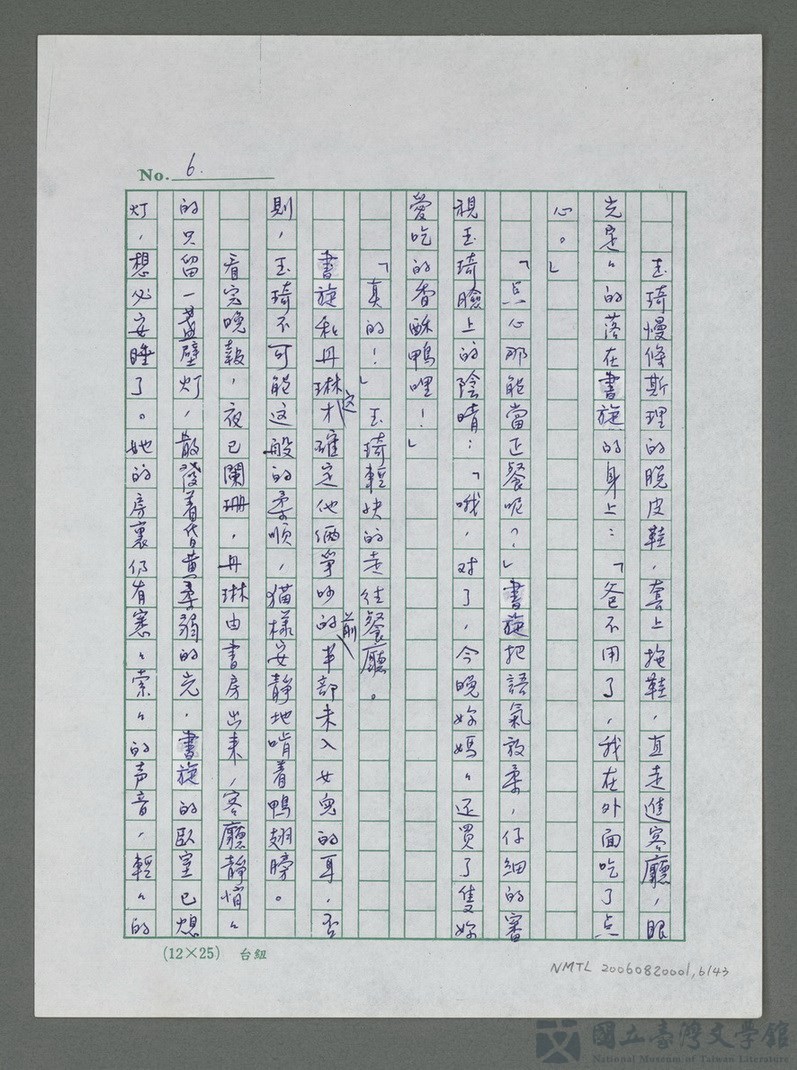 No. 6.
玉琦慢條斯理的脫皮鞋，套上拖鞋，直走進客廳，眼
光定々的落在書旋的身上：「爸不用了，我在外面吃了点
心。」
「点心那能當正餐呢？」書旋把語氣放柔，仔細的審
視玉琦臉上的陰晴：「哦，对了，今晚妳媽々还買了隻妳
愛吃的香酥鴨哩！」
「真的！」玉琦輕快的走往餐廳。
書旋和丹琳这才確定他倆爭吵的前半部未入女兒的耳，否
則，玉琦不可能這般的柔順，猫樣安靜地啃着鴨翅膀。
看完晚報，夜已闌珊，丹琳由書房出來，客廳靜悄々
的只留一盞壁灯，散發着昏黄柔弱的光，書旋的臥室已熄
灯，想必安睡了。她的房裏仍有窸々索々的声音，輕々的
(12×25) 台紐
NMTL 20060820001, 6/43
國立臺灣文學館
National Museum of Taiwan Literature